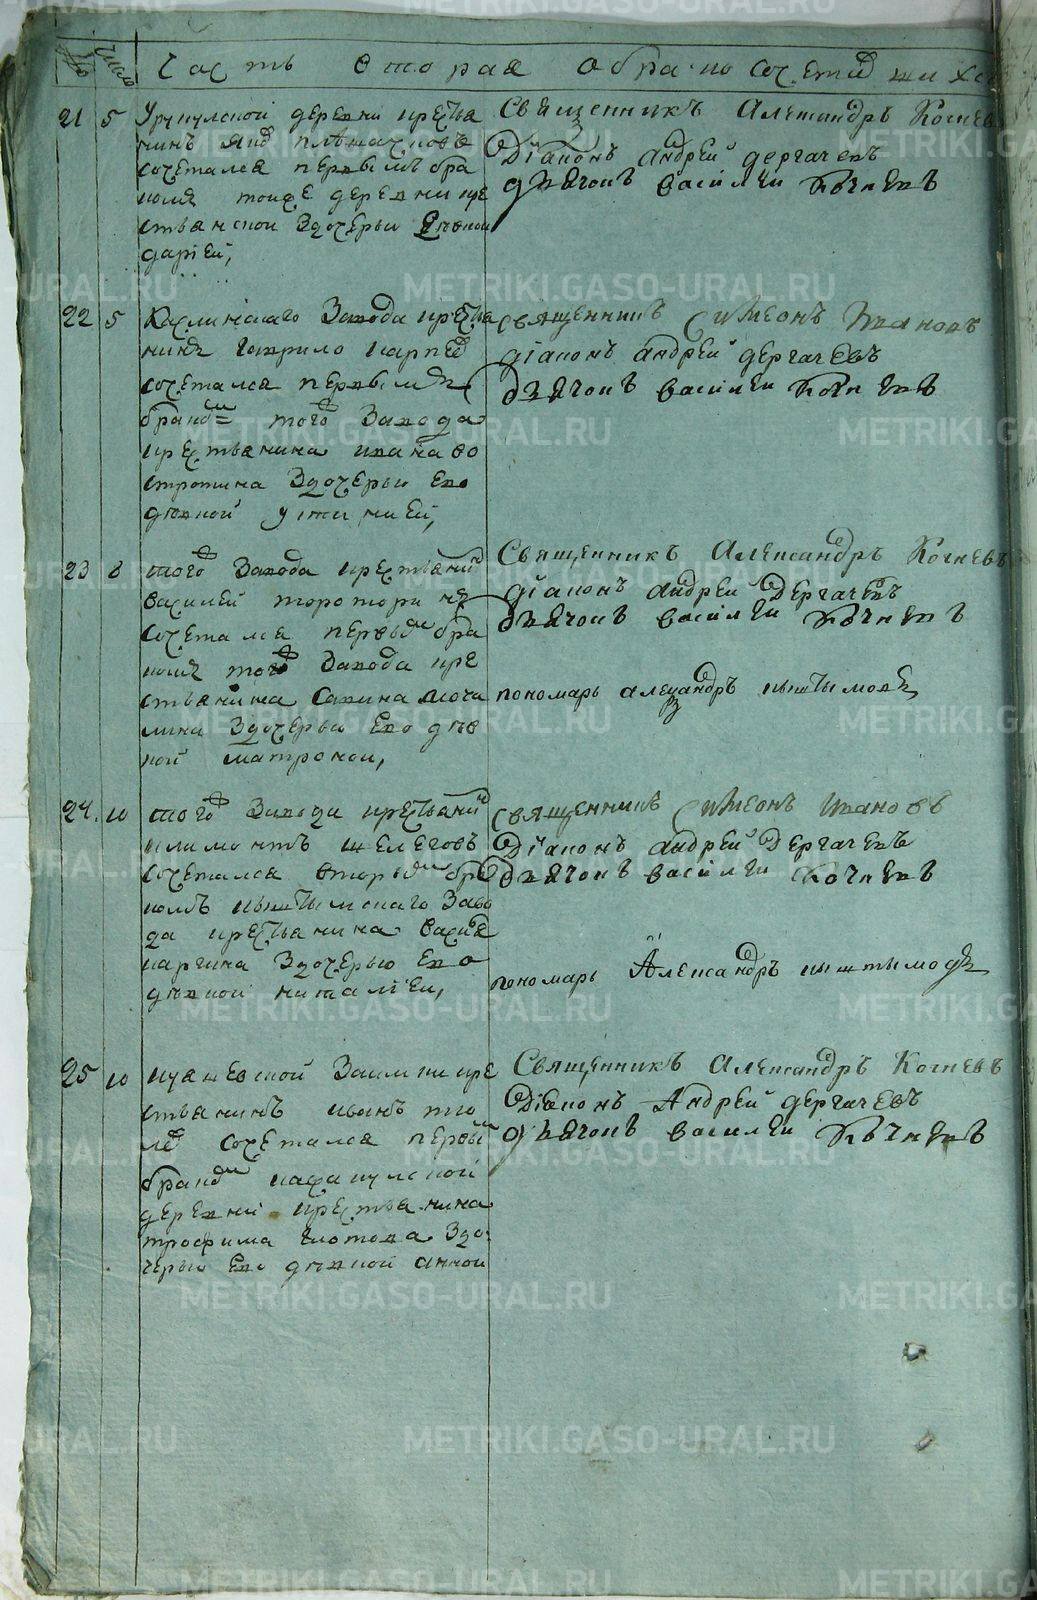 № Число Часть вторая о бракосочетавшихся
21 5 Урукулской деревни крестья
нинъ
сочетался первымъ бра
комъ тоиже деревни кре
стьянской здочерью
дарьей,
Священникъ Александръ Кочневъ
Діаконъ андрей дергачевъ
дьячокъ василеи Кочневъ
22 5 Каслинскаго Завода крестья
нинъ гаврило карпов
сочетался первымъ
бракомъ того Завода
крестьянина ивана во
стротина Здочерью Ево
девкой устиниеи,
священникъ симеонъ Ивановъ
діаконъ андреи дергачевъ
дьячокъ василеи Кочневъ
23 8 того Завода крестьянинъ
василей
сочетался первымъ бра
комъ того Завода кре
стьянина Савина моча
лина Здочерью Ево дев
кой матроной,
Священникъ Александръ Кочневъ
діаконъ андреи Дергачевъ
дьячокъ василеи Кочневъ
пономарь александръ кыштымовъ
24. 10 того Завода крестьянинъ
климонтъ щелеговъ
сочетался вторымъ бра
комъ кыштымскаго Заво
да крестьянина василья
каргина Здочерью Ево
девкой наталіеи,
священникъ симеонъ Ивановъ
Діаконъ андреи Дергачевъ
дьячокъ василеи Кочневъ
пономарь Александръ кыштымовъ
25 10 куяшевской Заимки кре
стьянинъ иванъ
сочетался первымъ
бракомъ
деревни крестьянина
трофима глотова Здо
черью Ево девкой анной
Священникъ Александръ Кочневъ
Діаконъ Андреи дергачевъ
дьячокъ василеи Кочневъ
METRIKI.GASO-URAL.RU